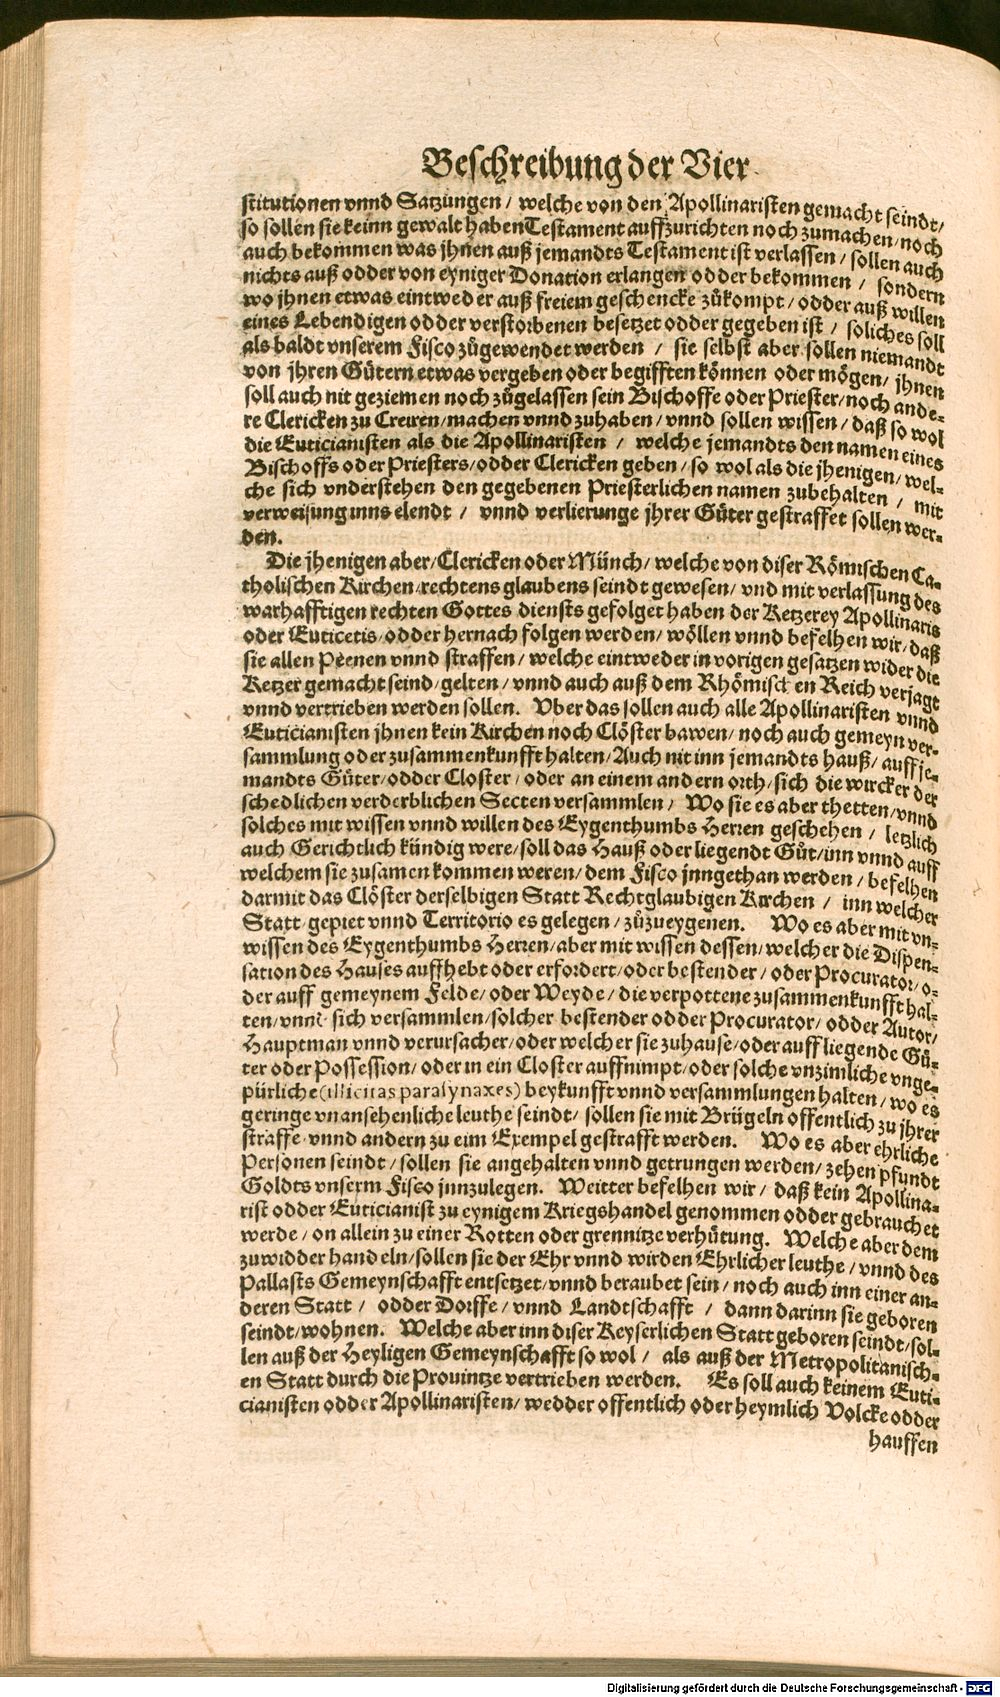 Beschreibung der Vier
stitutionen vnnd Satzungen / welche von den Apollinaristen gemacht seindt /
so sollen sie keinn gewalt haben Testament auffzurichten noch zumachen / noch
auch bekommen was jhnen auß jemandts Testament ist verlassen / sollen auch
nichts auß odder von eyniger Donation erlangen odder bekommen / sondern
wo jhnen etwas eintweder auß freiem geschencke zůkompt / odder auß willen
eines Lebendigen odder verstorbenen besetzet odder gegeben ist / soliches soll
als baldt vnserem Fisco zůgewendet werden / sie selbst aber sollen niemandt
von jhren Gütern etwas vergeben oder begifften können oder mögen / jhnen
soll auch nit geziemen noch zůgelassen sein Bischoffe oder Priester / noch ande-
re Clericken zu Creiren / machen vnnd zuhaben / vnnd sollen wissen / daß so wol
die Euticianisten als die Apollinaristen / welche jemandts den namen eines
Bischoffs oder Priesters / odder Clericken geben / so wol als die jhenigen / wel-
che sich vnderstehen den gegebenen Priesterlichen namen zubehalten / mit
verweisung inns elendt / vnnd verlierunge jhrer Güter gestraffet sollen wer-
den.
Die jhenigen aber / Clericken oder Münch / welche von diser Römischen Ca-
tholischen Kirchen rechtens glaubens seindt gewesen / vnd mit verlassung des
warhafftigen rechten Gottes diensts gefolget haben der Ketzerey Apollinaris
oder Euticetis / odder hernach folgen werden / wöllen vnnd befelhen wir / daß
sie allen Peenen vnnd straffen / welche eintweder in vorigen gesatzen wider die
Ketzer gemacht seind / gelten / vnnd auch auß dem Rhömischen Reich verjagt
vnnd vertrieben werden sollen. Vber das sollen auch alle Apollinaristen vnnd
Euticianisten jhnen kein Kirchen noch Clöster bawen / noch auch gemeyn ver-
sammlung oder zusammenkunfft halten / Auch nit inn jemandts hauß / auff je-
mandts Güter / odder Closter / oder an einem andern orth / sich die wircker der
schedlichen verderblichen Secten versammlen / Wo sie es aber thetten / vnnd
solches mit wissen vnnd willen des Eygenthumbs Herren geschehen / letzlich
auch Gerichtlich kündig were / soll das Hauß oder liegendt Gůt / inn vnnd auff
welchem sie zusamen kommen weren / dem Fisco jnngethan werden / befelhen
darmit das Clöster derselbigen Statt Rechtglaubigen Kirchen / inn welcher
Statt gepiet vnnd Territorio es gelegen / zůzueygenen. Wo es aber mit vn-
wissen des Eygenthumbs Herren / aber mit wissen dessen / welcher die Dispen-
sation des Hauses auffhebt oder erfordert / oder bestender / oder Procurator / o-
der auff gemeynem Felde / oder Weyde / die verpottene zusammenkunfft hal-
ten / vnnd sich versammlen / solcher bestender odder Procurator / odder Autor /
Hauptman vnnd verursacher / oder welcher sie zuhause / oder auff liegende Gü-
ter oder Possession / oder in ein Closter auffnimpt / oder solche vnzimliche vnge-
pürliche (illicitas parasynaxes) beykunfft vnnd versammlungen halten / wo es
geringe vnansehenliche leuthe seindt / sollen sie mit Brügeln offentlich zu jhrer
straffe vnnd andern zu eim Exempel gestrafft werden. Wo es aber ehrliche
Personen seindt / sollen sie angehalten vnnd getrungen werden / zehen pfundt
Goldts vnserm Fisco jnnzulegen. Weitter befelhen wir / daß kein Apollina-
rist odder Euticianist zu eynigem Kriegshandel genommen odder gebrauchet
werde / on allein zu einer Rotten oder grennitze verhütung. Welche aber dem
zuwidder handeln / sollen sie der Ehr vnnd wirden Ehrlicher leuthe / vnnd des
Pallasts Gemeynschafft entsetzet / vnnd beraubet sein / noch auch inn einer an-
deren Statt / odder Dorffe / vnnd Landtschafft / dann darinn sie geboren
seindt / wohnen. Welche aber inn diser Keyserlichen Statt geboren seindt / sol-
len auß der Heyligen Gemeynschafft so wol / als auß der Metropolitanisch-
en Statt durch die Prouintze vertrieben werden. Es soll auch keinem Euti-
cianisten odder Apollinaristen / wedder offentlich oder heymlich Volcke odder
hauffen
Digitalisierung gefördert durch die Deutsche Forschungsgemeinschaft - DFG